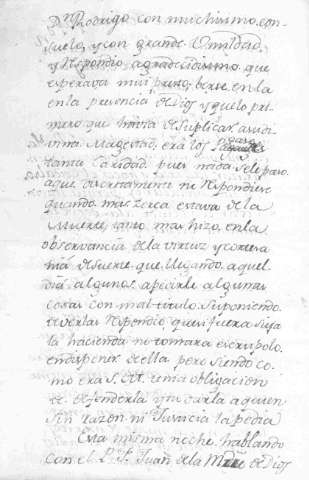 Dn Rodrigo con muchissimo con-
suelo, y con grande Omildad
y Respondio agradecidissimo que
esperava mui presto berse en la
en la presencia de Dios y que lo pri-
mero que havia de suplicar a su di-
vina Magestad, era los pagase
tanta Caridad pues nada se le paro
a que discretamente no Respondiese
quando mas zerca estava de la
Muerte, tanto mas hizo, en la
observancia de la virtud y
mia de suerte que llegando aquel
dia algunos a pedirle algunas
cosas con mal titulo suponiendo
deverlas Respondio, que si fuera suya
la hacienda no tomara escrupolo
en disponer de ella pero siendo co-
mo era S. M. tenia obligacion
de defenderla y no darla a quien
sin razon ni Justicia la pedia
Esta misma noche, hablando
con el P. F. Juan de la Me de Dios